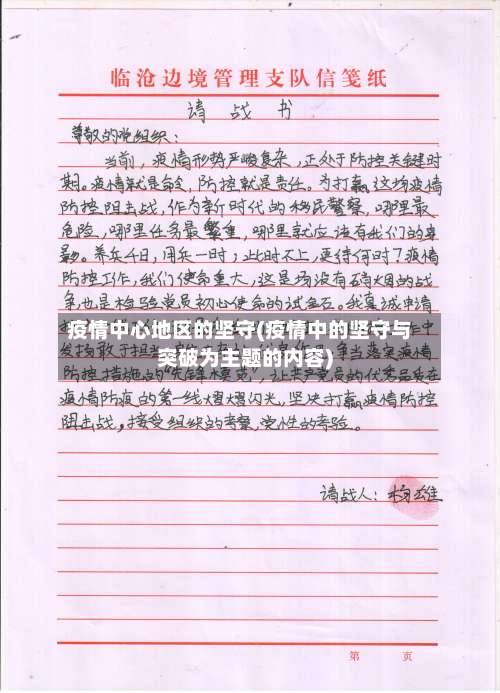 临沧边境管理支队信笺纸
请战书
尊敬的党组织：
当前，疫情形势严峻复杂，正处于防控关键时
期。疫情就是命令，防控就是责任。为打赢这场疫情
防控阻击战，作为新时代的移民警察，哪里最
危险，哪里任务最繁重，哪里就应该有我们的身
影。养兵千日，用兵一时；此时不上，更待何时？疫情
防控工作，我们使命重大，这是场没有硝烟的战
争也是检验党员初心使命的试金石。我真诚申请
疫情中心地区的坚守(疫情中的坚守与
突破为主题的内容)
发扬敢于担当 争当落实疫情
防控措施的“先锋模范”，让共产党员的优秀品质在
疫情防疫的第一线熠熠闪光，坚决打赢疫情防控
阻击战，接受组织的考察，党性的考验。
请战人：杨雄
第 页